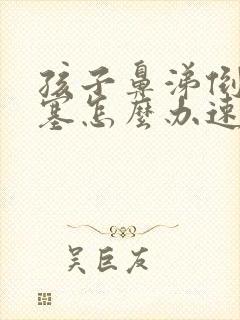 孩子鼻涕倒
塞怎麼办速
吴巨友